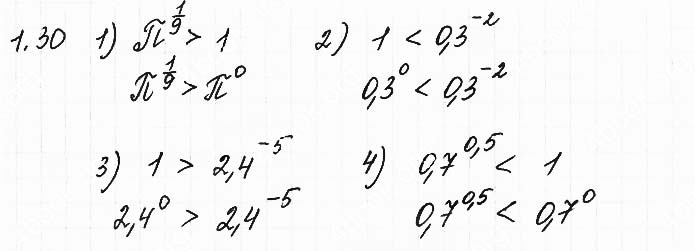 1.30 1) π^{\frac{1}{9}} > 1 2) 1 < 0,3^{-2}
π^{\frac{1}{9}} > π^0 0,3^0 < 0,3^{-2}
3) 1 > 2,4^{-5} 4) 0,7^{0,5} < 1
2,4^0 > 2,4^{-5} 0,7^{0,5} < 0,7^0